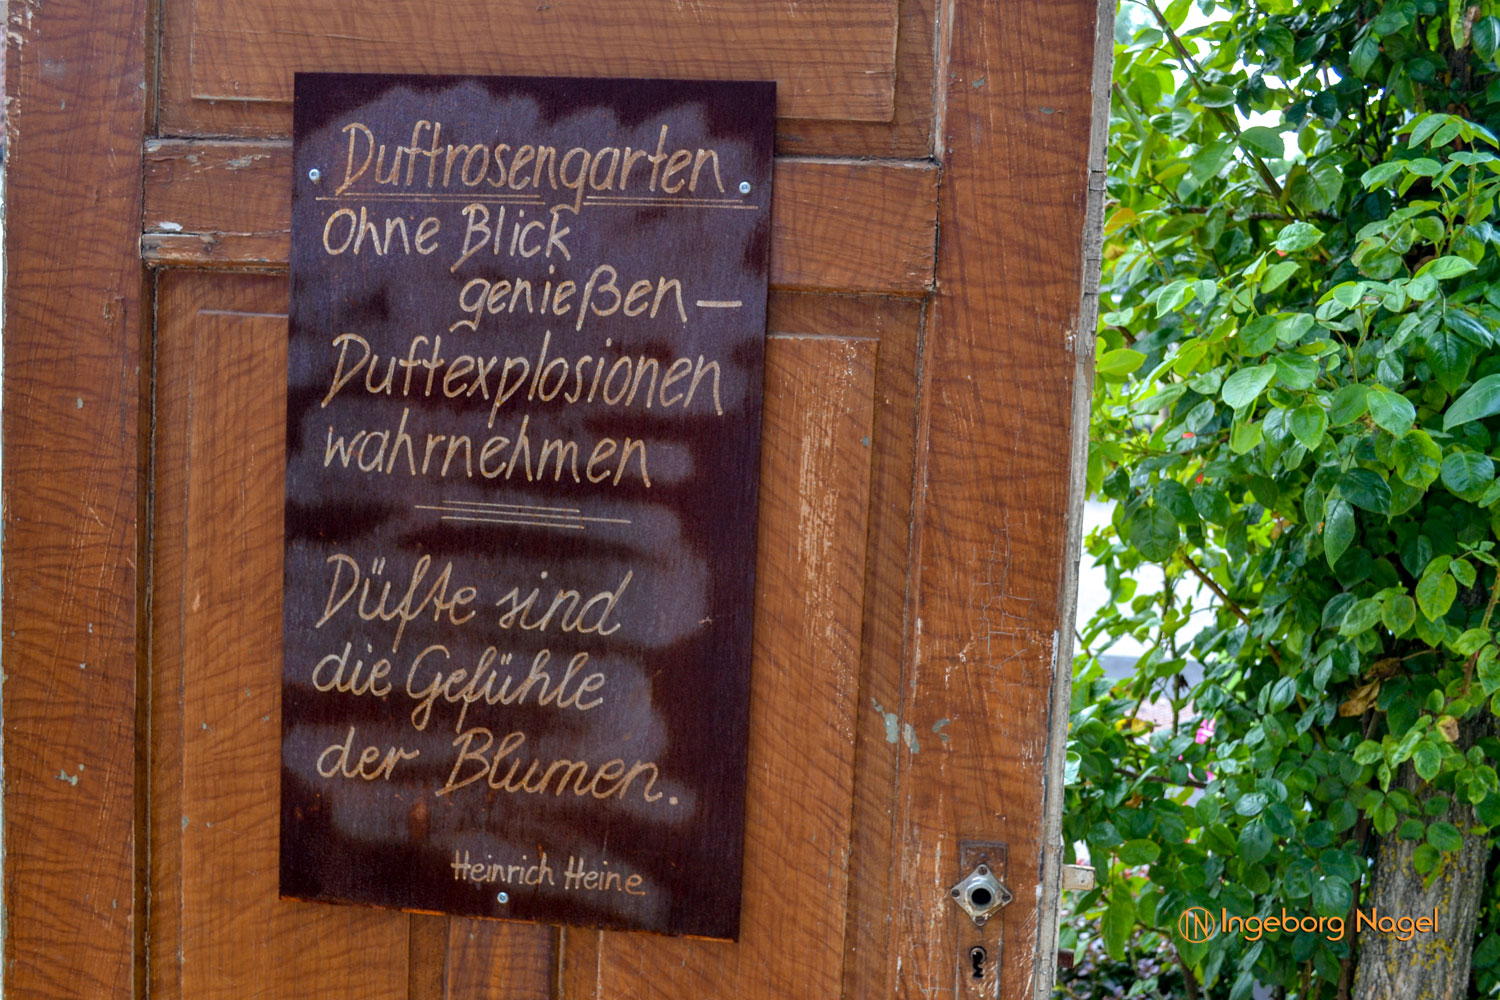 Duftrosengarten
Ohne Blick
genießen –
Duftexplosionen
wahrnehmen
Düfte sind
die Gefühle
der Blumen.
Heinrich Heine
IN Ingeborg Nagel